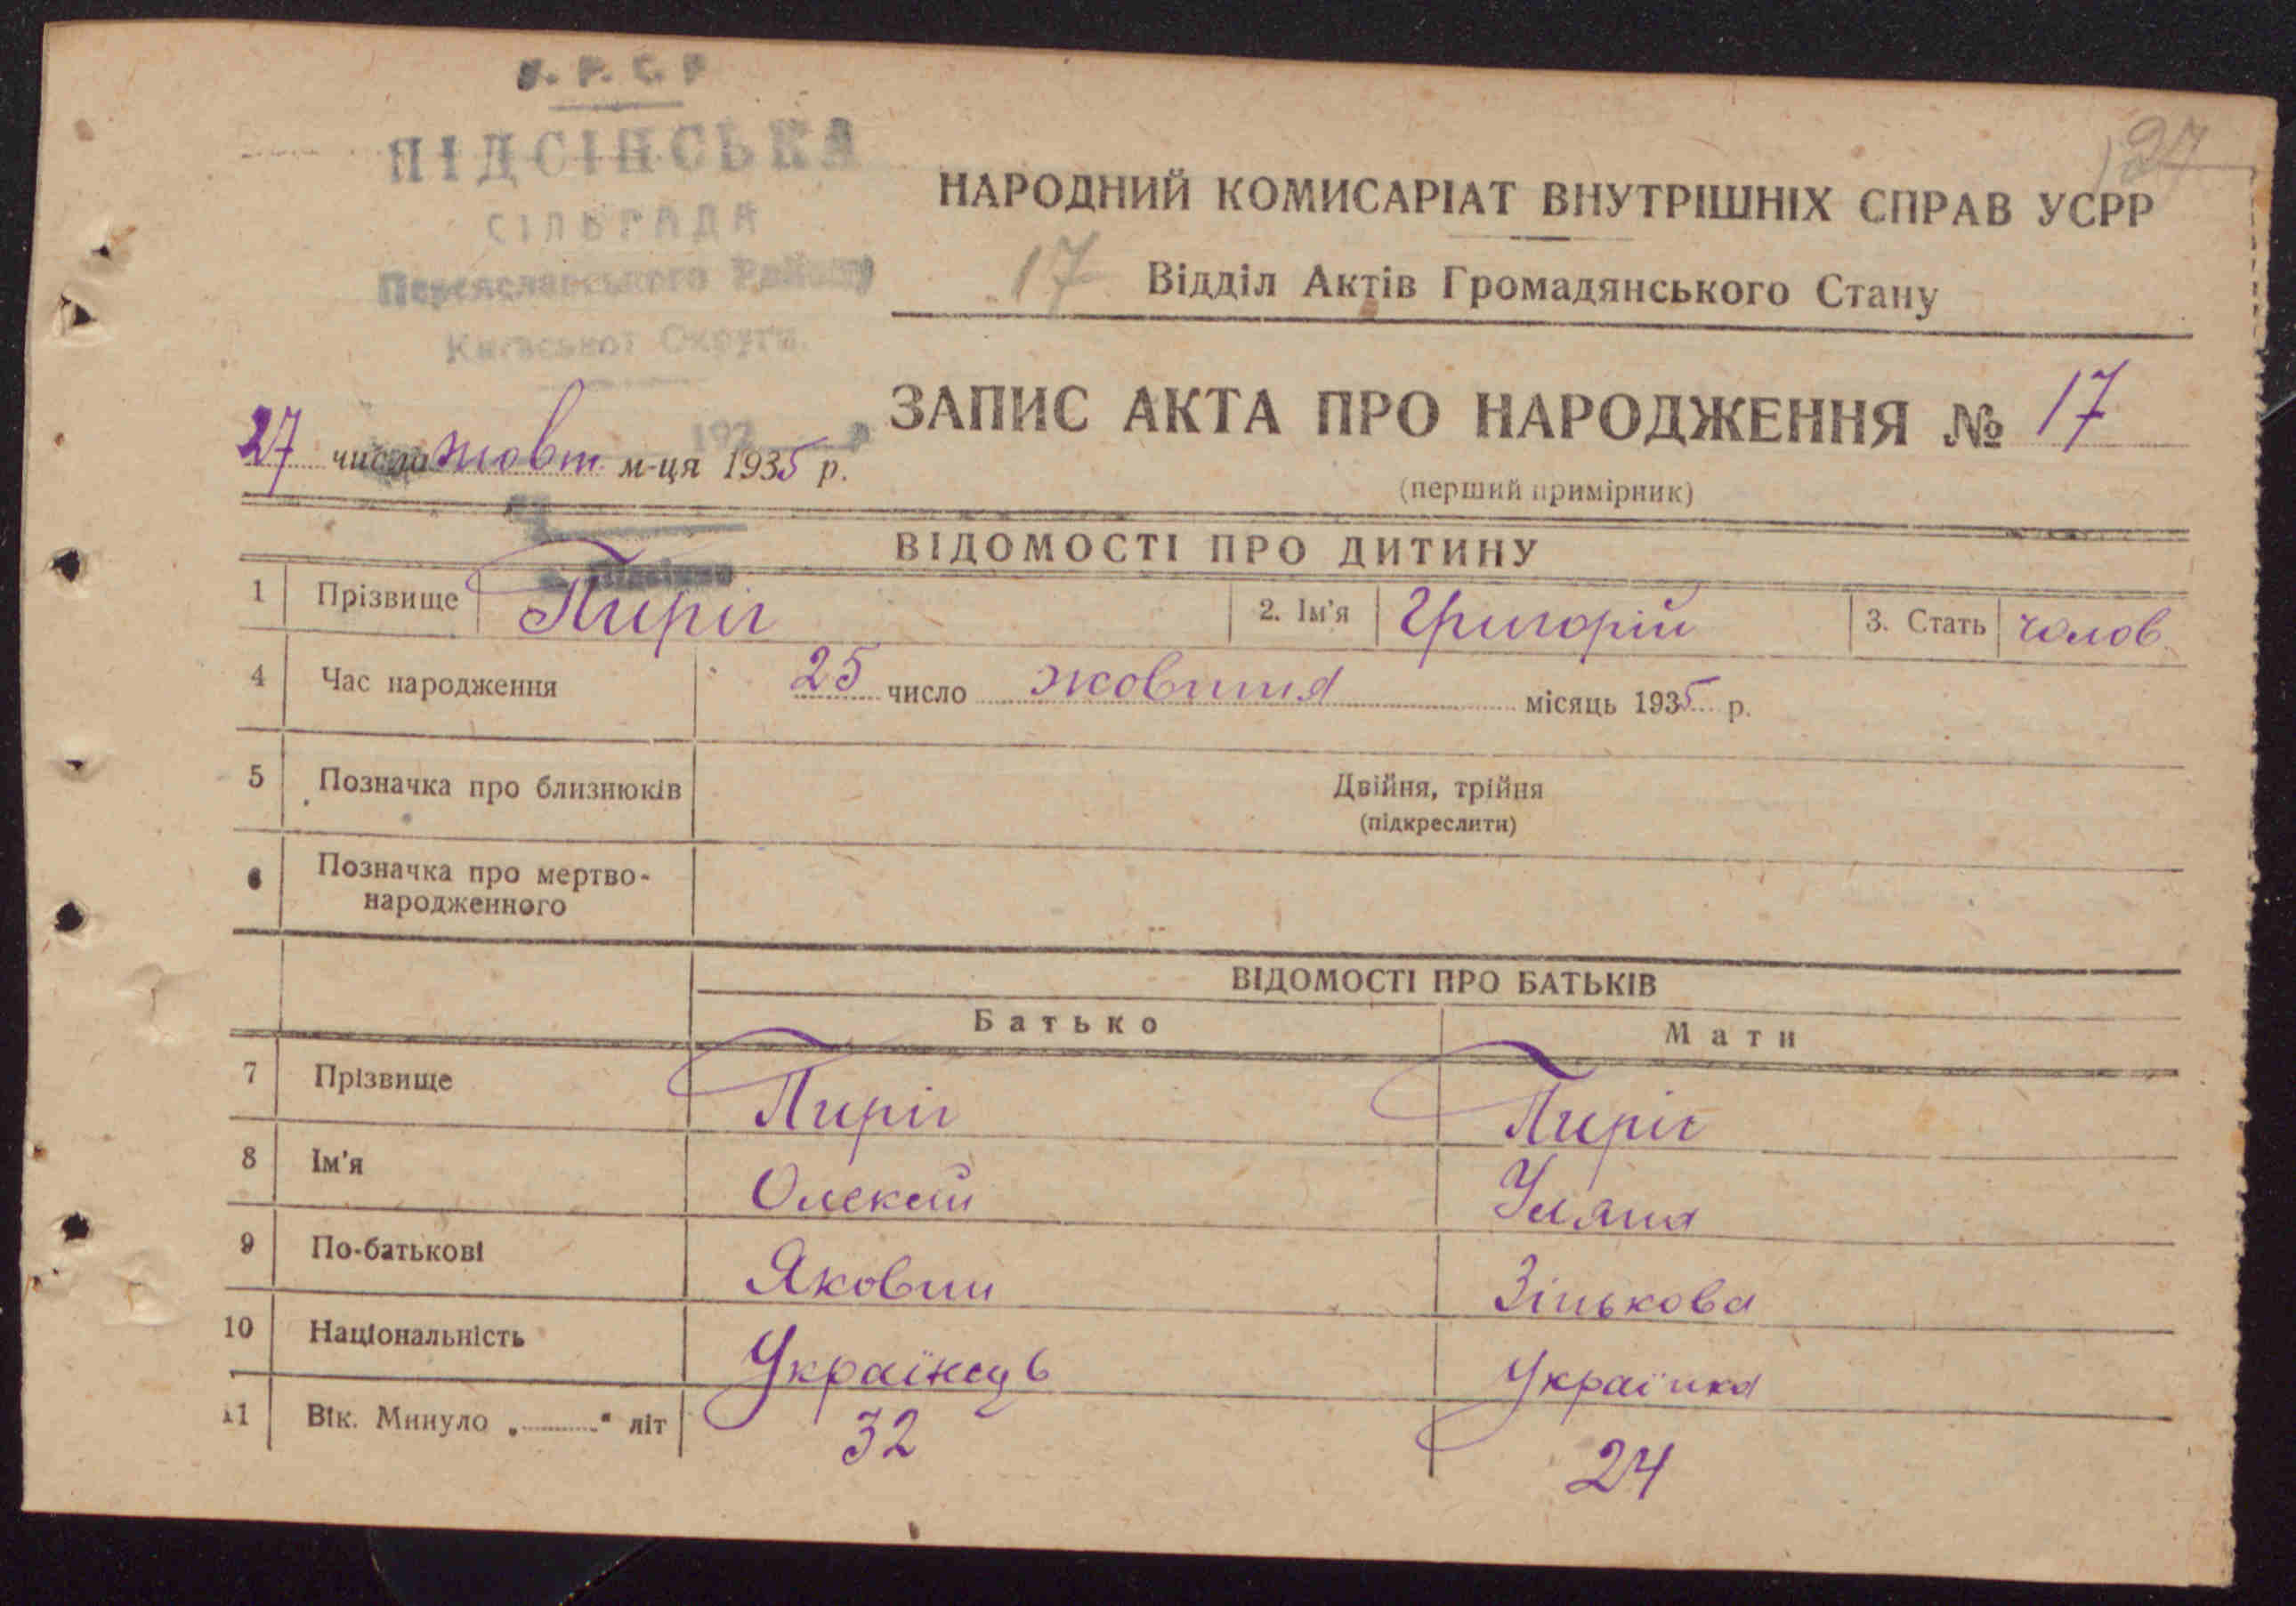 У. Р. С. Р
ПІДСІНСЬКА
СІЛЬРАДА
Переяславського Району
Київської Округи.
27
НАРОДНИЙ КОМИСАРІАТ ВНУТРІШНІХ СПРАВ УСРР
17 Відділ Актів Громадянського Стану
ЗАПИС АКТА ПРО НАРОДЖЕННЯ № 17
192 р
27 числа жовт м-ця 1935 р.
(перший примірник)
ВІДОМОСТІ ПРО ДИТИНУ
1 Прізвище Пиріг 2. Ім'я Григорій 3. Стать чолов.
4 Час народження 25 число жовтня місяць 1935 р.
5 Позначка про близнюків Двійня, трійня
(підкреслити)
6 Позначка про мертво-
народженного
ВІДОМОСТІ ПРО БАТЬКІВ
Батько Мати
7 Прізвище Пиріг Пиріг
8 Ім'я Олексій Уляна
9 По-батькові Якович Зінькова
10 Національність Українець Українка
11 Вік. Минуло „ " літ 32 24